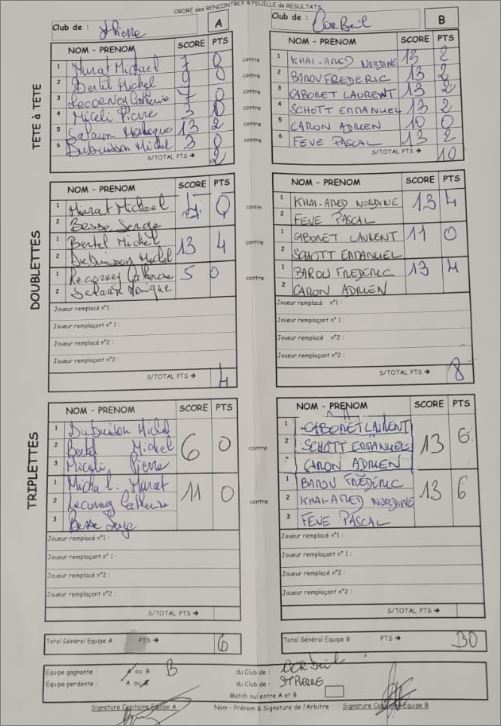 ORDRE des RENCONTRES & FEUILLE de RESULTATS
Club de : St Pierre A
Club de : Corbeil B
TETE à TETE
NOM - PRENOM SCORE PTS
1 Murat Mickael 7 0 contre
2 Bertel Michel 9 0 contre
3 Lecorney Catherine 7 0 contre
4 Miceli Pierre 3 0 contre
5 Salaun Monique 13 2 contre
6 Dubuisson Michel 3 0
S/TOTAL PTS → 2
NOM - PRENOM SCORE PTS
1 KHAI-AMED NORDINE 13 2
2 BAROU FREDERIC 13 2
3 CABORET LAURENT 13 2
4 SCHOTT EMMANUEL 13 2
5 CARON ADRIEN 10 0
6 FEVE PASCAL 13 2
S/TOTAL PTS → 10
DOUBLETTES
NOM - PRENOM SCORE PTS
1 Murat Mickael 0 contre
2 Besse Serge
1 Bertel Michel 13 4 contre
2 Dubuisson Michel
1 Lecorney Catherine 5 0 contre
2 Salaun Monique
Joueur remplacé n°1 :
Joueur remplaçant n°1 :
Joueur remplacé n°2 :
Joueur remplaçant n°2 :
S/TOTAL PTS → 4
NOM - PRENOM SCORE PTS
1 KHAI-AMED NORDINE 13 4
2 FEVE PASCAL
1 CABORET LAURENT 11 0
2 SCHOTT EMMANUEL
1 BAROU FREDERIC 13 4
2 CARON ADRIEN
Joueur remplacé n°1 :
Joueur remplaçant n°1 :
Joueur remplacé n°2 :
Joueur remplaçant n°2 :
S/TOTAL PTS → 8
TRIPLETTES
NOM - PRENOM SCORE PTS
1 Dubuisson Michel
2 Bertel Michel 6 0 contre
3 Miceli Pierre
1 Murat
2 Lecorney Catherine 11 0 contre
3 Besse Serge
Joueur remplacé n°1 :
Joueur remplaçant n°1 :
Joueur remplacé n°2 :
Joueur remplaçant n°2 :
S/TOTAL PTS →
NOM - PRENOM SCORE PTS
1 CABORET LAURENT
2 SCHOTT EMMANUEL 13 6
3 CARON ADRIEN
1 BAROU FRÉDÉRIC
2 KHAI-AMED NORDINE 13 6
3 FEVE PASCAL
Joueur remplacé n°1 :
Joueur remplaçant n°1 :
Joueur remplacé n°2 :
Joueur remplaçant n°2 :
S/TOTAL PTS →
Total Général Equipe A PTS → 6
Total Général Equipe B PTS → 30
Equipe gagnante : A ou B B du Club de : corbeil
Equipe perdante : A ou B du Club de : St PIERRE
Match nul entre A et B
Signature Capitaine Equipe A Nom - Prénom & Signature de l'Arbitre Signature Capitaine Equipe B